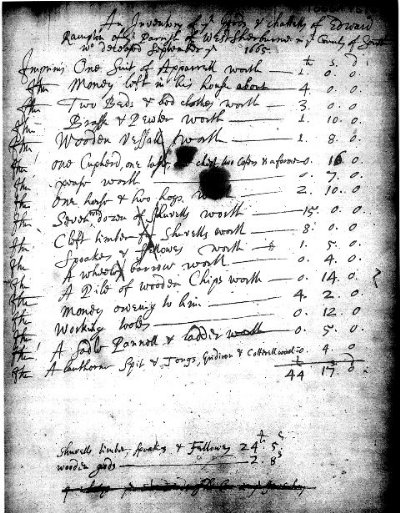 An Inventory of ye goods & chattels of Edward
Rainton of ye Parish of West Sherburne in ye County of South
deceased September ye 1665.
li s d
Imprimis One Suit of Aparrell worth — 1. 0. 0
Itm Money left in his house about — 4. 0. 0
Itm Two Beds & bed clothes worth — 3. 0. 0
Itm Brass & Pewter worth — 1. 10. 0
Itm Wooden Vessalls worth — 1. 8. 0
Itm one Cupberd, one chest two Cofers & a forme 0. 16 0
Itm worth — 0. 7. 0
Itm one horse & two hogs — 2. 10. 0
Itm Seven dozen of Shovells worth — 15. 0. 0
Itm Cleft timber for Shovells worth — 8. 0. 0
Itm Speakes & fellowes worth — 1. 5. 0
Itm A wheele barrow worth — 0. 4. 0
Itm A Pile of wooden Chips worth — 0. 14. 0
Itm Money oweing to him — 4. 2. 0
Itm Working tooles — 0. 12. 0
Itm A Sadle Pannell & ladder worth — 0. 5. 0
Itm A lanthorn Spit & Tongs, Gridiron & 0. 4 0
44 17 0
Shovells timber, speakes & Fallowes 24 5
wooden goods — 2. 8